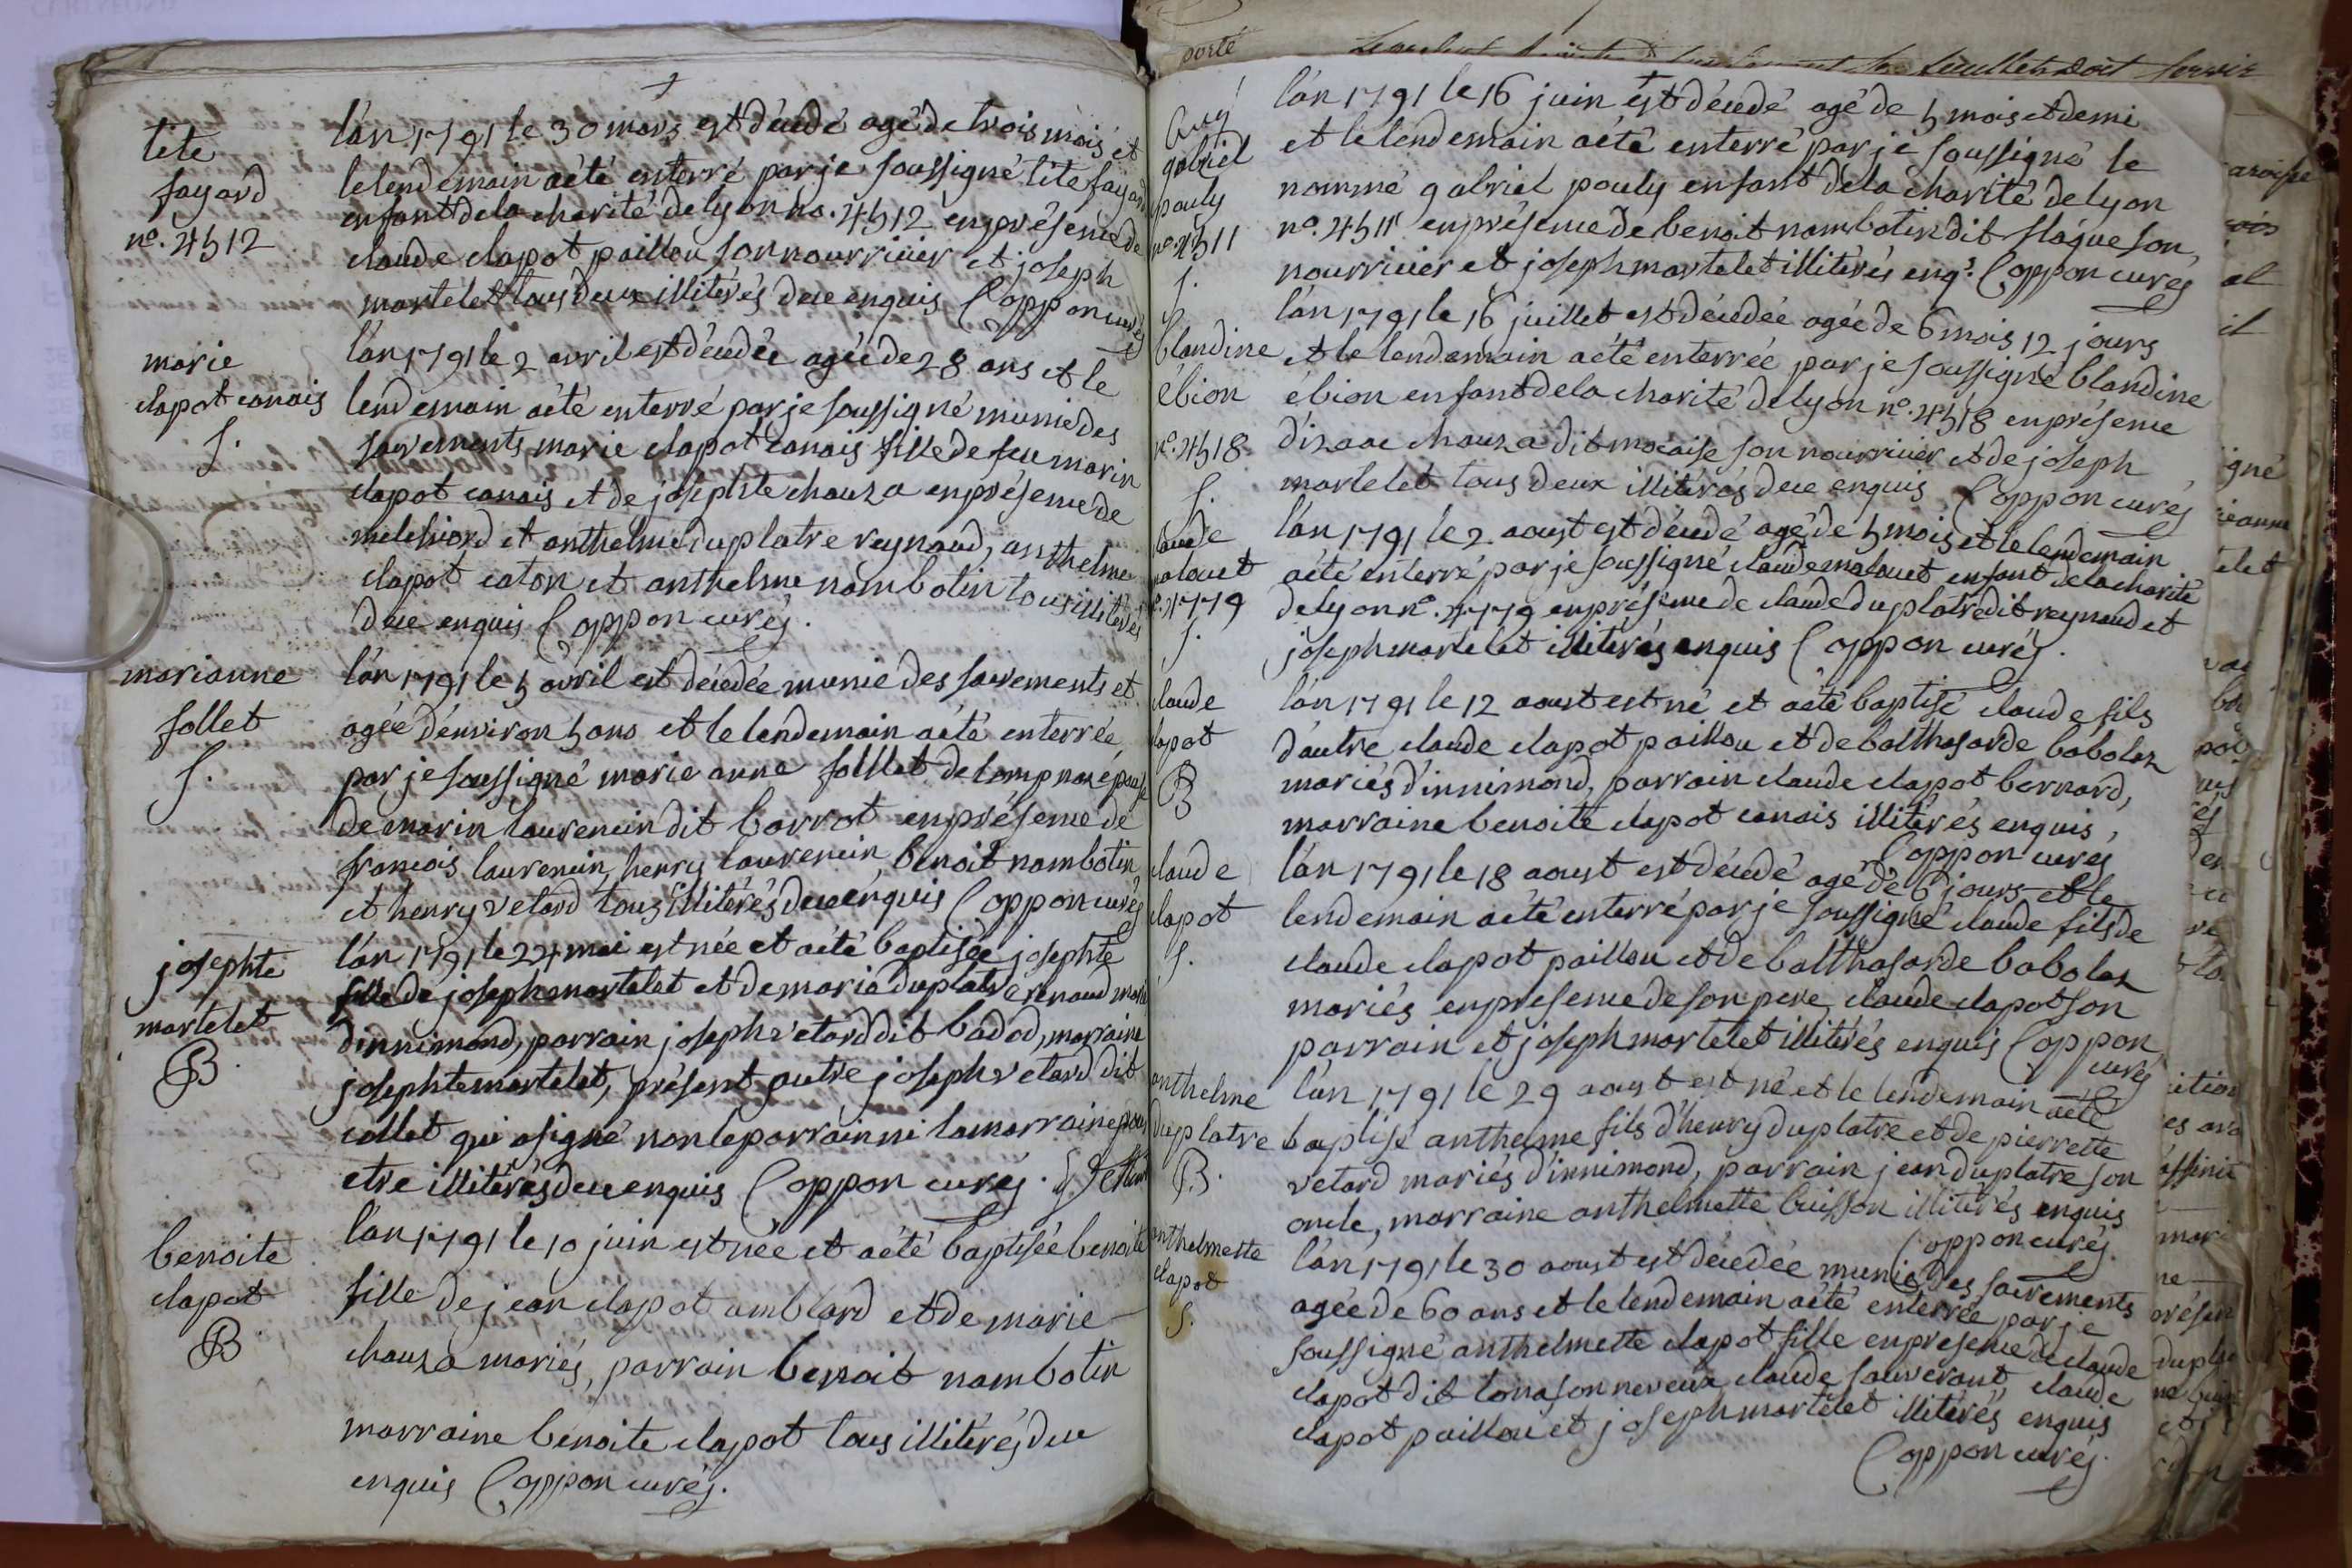 tite
fayard
no. 4512
l'an 1791 le 30 mars est décédé agé de trois mois et
le lendemain a été enterré par je soussigné tite fayard
enfant de la charité de lyon no. 4512 en présence de
claude clapot paillou son nourricier et joseph
martelet tous deux illitérés de ce enquis Coppon curés
marie
clapot canais
S.
l'an 1791 le 2 avril est décédée agée de 28 ans et le
lendemain a été enterré par je soussigné munie des
sacrements marie clapot canais fille de feu marin
clapot canais et de josephte chauza en présence de
melchiord et anthelme duplatre reynaud, anthelme
clapot caton et anthelme nambotin tous illitérés
de ce enquis Coppon curés.
marianne
follet
S.
l'an 1791 le 5 avril est décédée munie des sacrements et
agée d'environ 5 ans et le lendemain a été enterrée
par je soussigné marie anne folllet de lompnaz épouse
de marin laurencin dit barrot en présence de
francois laurencin, henry laurencin, benoit nambotin
et henry vetard tous illitérés de ce enquis Coppon curés
josephte
martelet
B.
l'an 1791 le 24 mai est née et a été baptisée josephte
fille de joseph martelet et de marie duplatre renaud mariés
d'innimond, parrain joseph vetard dit badod, marraine
josephte martelet, présent autre joseph vetard dit
collet qui a signé non le parrain ni la marraine pour
etre illitérés de ce enquis Coppon curés. J. Vetard
benoite
clapot
B
l'an 1791 le 10 juin est née et a été baptisée benoite
fille de jean clapot amblard et de marie
chauza mariés, parrain benoit nambotin
marraine benoite clapot tous illitérés de ce
enquis Coppon curés.
porté
feuillets doit servir
gabriel
pouly
no. 4511
S.
l'an 1791 le 16 juin est décédé agé de 5 mois et demi
et le lendemain a été enterré par je soussigné le
nommé gabriel pouly enfant de la charité de lyon
no. 4511 en présence de benoit nambotin dit slaque son
nourricier et joseph martelet illitérés enqs. Coppon curés
blandine
ébion
no. 4518
S.
l'an 1791 le 16 juillet est décédée agée de 6 mois 12 jours
et le lendemain a été enterrée par je soussigné blandine
ébion enfant de la charité de lyon no. 4518 en présence
d'izaac chauza dit mocaise son nourricier et de joseph
martelet tous deux illitérés de ce enquis Coppon curés
claude
malouet
no. 4779
S.
l'an 1791 le 2 aoust est décédé agé de 5 mois et le lendemain
a été enterré par je soussigné claude malouet enfant de la charité
de lyon no. 4779 en présence de claude duplatre dit reynaud et
joseph martelet illitérés enquis Coppon curés.
claude
clapot
B
l'an 1791 le 12 aoust est né et a été baptisé claude fils
d'autre claude clapot paillou et de balthasarde baboloz
mariés d'innimond, parrain claude clapot bernard,
marraine benoite clapot canais illitérés enquis,
Coppon curés
claude
clapot
S.
l'an 1791 le 18 aoust est décédé agé de 6 jours et le
lendemain a été enterré par je soussigné claude fils de
claude clapot paillou et de balthasarde baboloz
mariés en presence de son pere, claude clapot son
parrain et joseph martelet illitérés enquis Coppon
curés
anthelme
duplatre
B.
l'an 1791 le 29 aoust est né et le lendemain a été
baptisé anthelme fils d'henry duplatre et de pierrette
vetard mariés d'innimond, parrain jean duplatre son
oncle, marraine anthelmette buisson illitérés enquis
Coppon curés.
anthelmette
clapot
S.
l'an 1791 le 30 aoust est décédée munie des sacrements
agée de 60 ans et le lendemain a été enterrée par je
soussigné anthelmette clapot fille en presence de claude
clapot dit tona son neveux claude sauverant claude
clapot paillou et joseph martelet illitérés enquis
Coppon curés.